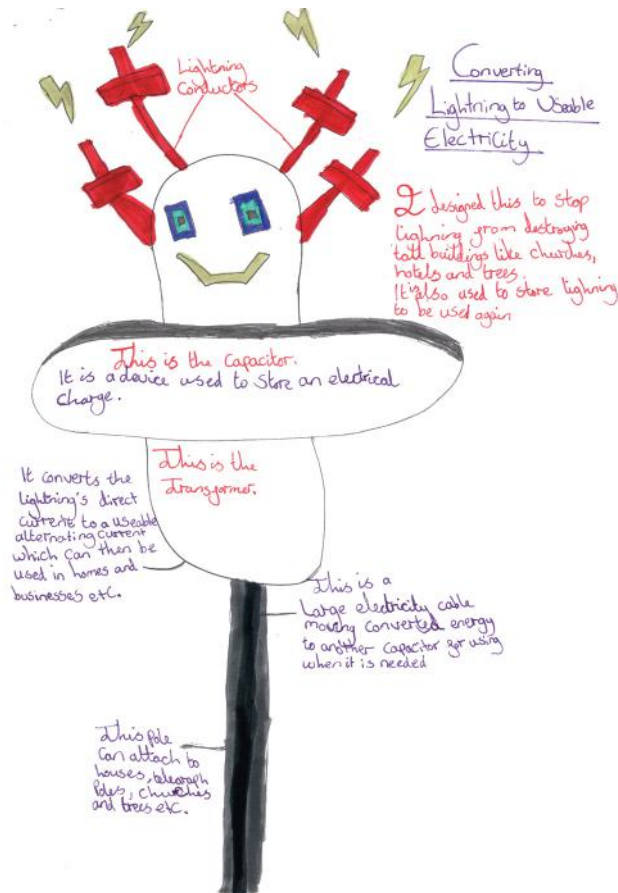 Lightning
Conductors
Converting
Lightning to Useable
Electricity
I designed this to stop
lighning from destroying
tall buildings like churches,
hotels and trees.
It's also used to store lighning
to be used again
This is the Capacitor.
It is a device used to store an electrical
charge.
This is the
Transformer.
It converts the
lightning's direct
current to a useable
alternating current
which can then be
used in homes and
businesses etc.
This is a
Large electricity cable
moving converted energy
to another capacitor for using
when it is needed
This pole
can attach to
houses, telegraph
Poles, churches
and trees etc.